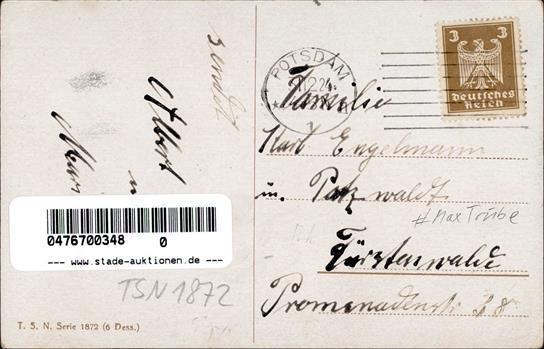 sendet
Albert
u
Mar
0476700348 0
--- www.stade-auktionen.de ---
TSN 1872
T. S. N. Serie 1872 (6 Dess.)
POTSDAM
12.24
3 3
Deutsches
Reich
Familie
Karl Engelmann
u. Patzwaldt
#MaxTrübe
Fürstenwalde
Promenadenstr 28